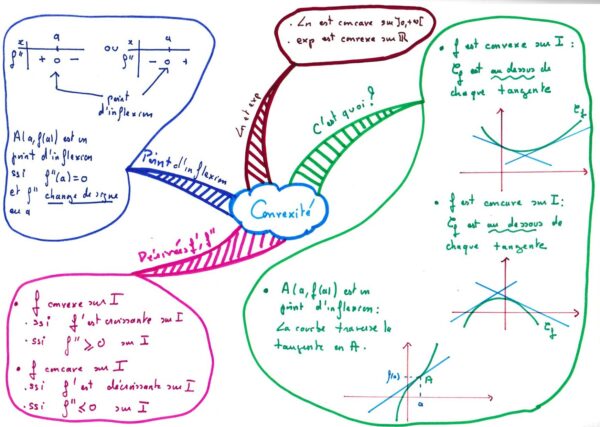 Convexité
Ln et exp
. Ln est concave sur ]0,+∞[
. exp est convexe sur ℝ
C'est quoi ?
• f est convexe sur I :
𝒞f est au dessus de
chaque tangente
𝒞f
• f est concave sur I :
𝒞f est au dessous de
chaque tangente
𝒞f
• A(a, f(a)) est un
point d'inflexion :
La courbe traverse la
tangente en A.
f(a)
A
a
Point d'inflexion
x a
f'' + 0 -
ou
x a
f'' - 0 +
point
d'inflexion
A(a, f(a)) est un
point d'inflexion
ssi f''(a)=0
et f'' change de signe
en a
Dérivées f', f''
• f convexe sur I
. ssi f' est croissante sur I
. ssi f'' ⩾ 0 sur I
• f concave sur I
. ssi f' est décroissante sur I
. ssi f'' ⩽ 0 sur I